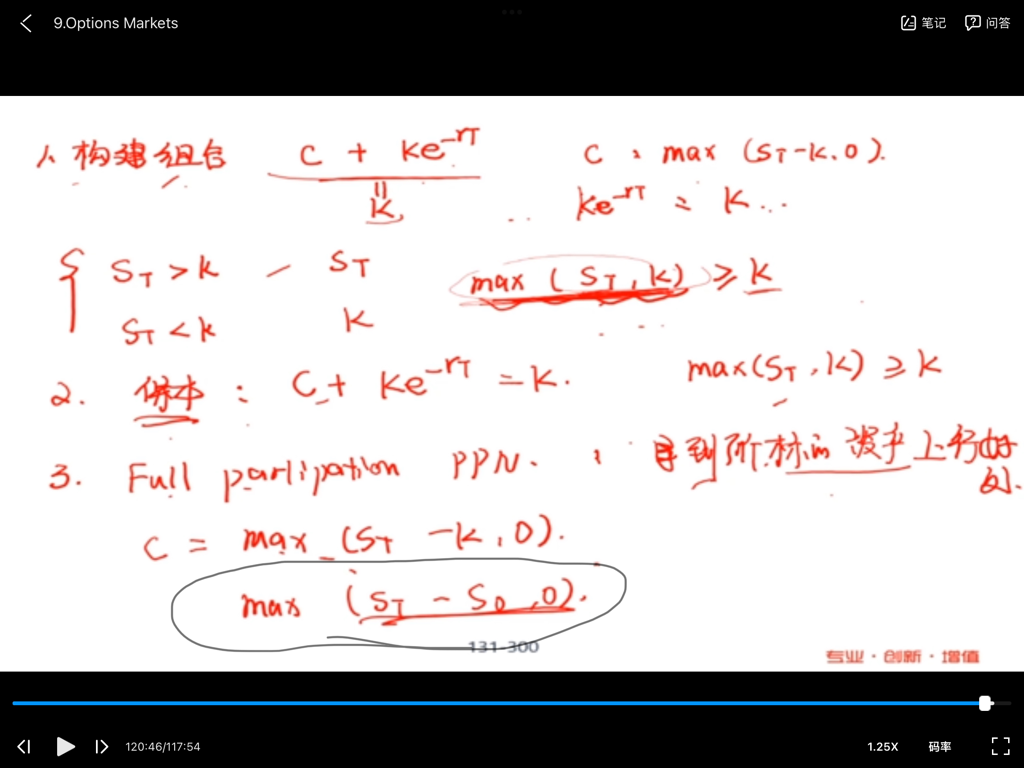 9.Options Markets
笔记
问答
1. 构建组合 C + Ke^-rT C : max (ST-K,0).
" K, Ke^-rT = K...
ST > K — ST max (ST, K) ≥ K
ST < K K
2. 保本 : C + Ke^-rT = K. max(ST, K) ≥ K
3. Full partipation PPN. : 标的 上行
C = max (ST - K, 0).
max (ST - S0, 0).
131-300
专业·创新·增值
120:46/117:54
1.25X
码率